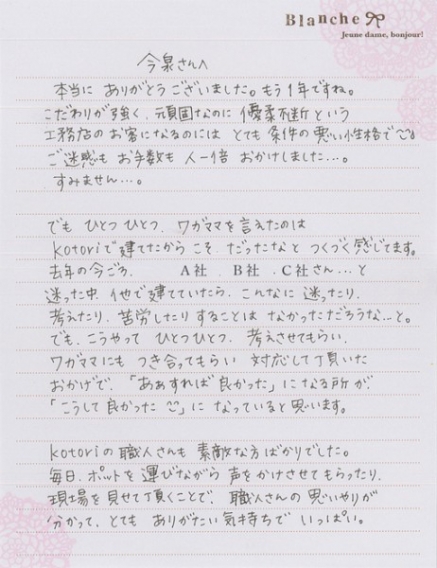 Blanche
Jeune dame, bonjour!
今泉さんへ
本当に ありがとうございました。もう1年ですね。
こだわりが強く、頑固なのに 優柔不断という
工務店のお客になるのには とても 条件の悪い性格で
ご迷惑も お手数も 人一倍 おかけしました…。
すみません…。
でも ひとつひとつ、ワガママを言えたのは
kotoriで建てたから こそ だったなと つくづく感じてます。
去年の今ごろ、 A社 、B社 、C社さん…と
迷った中、他で建てていたら、こんなに 迷ったり、
考えたり、苦労したりすることは なかっただろうな…と。
でも、こうやって ひとつひとつ、考えさせてもらい、
ワガママにも つき合ってもらい 対応して頂いた
おかげで、「あぁすれば良かった」になる所が、
「こうして良かった ^^」に なっていると思います。
kotoriの職人さんも 素敵な方ばかりでした。
毎日、ポットを運びながら 声をかけさせてもらったり、
現場を見せて頂くことで、職人さんの思いやりが
分かって、とても ありがたい気持ちで いっぱい。